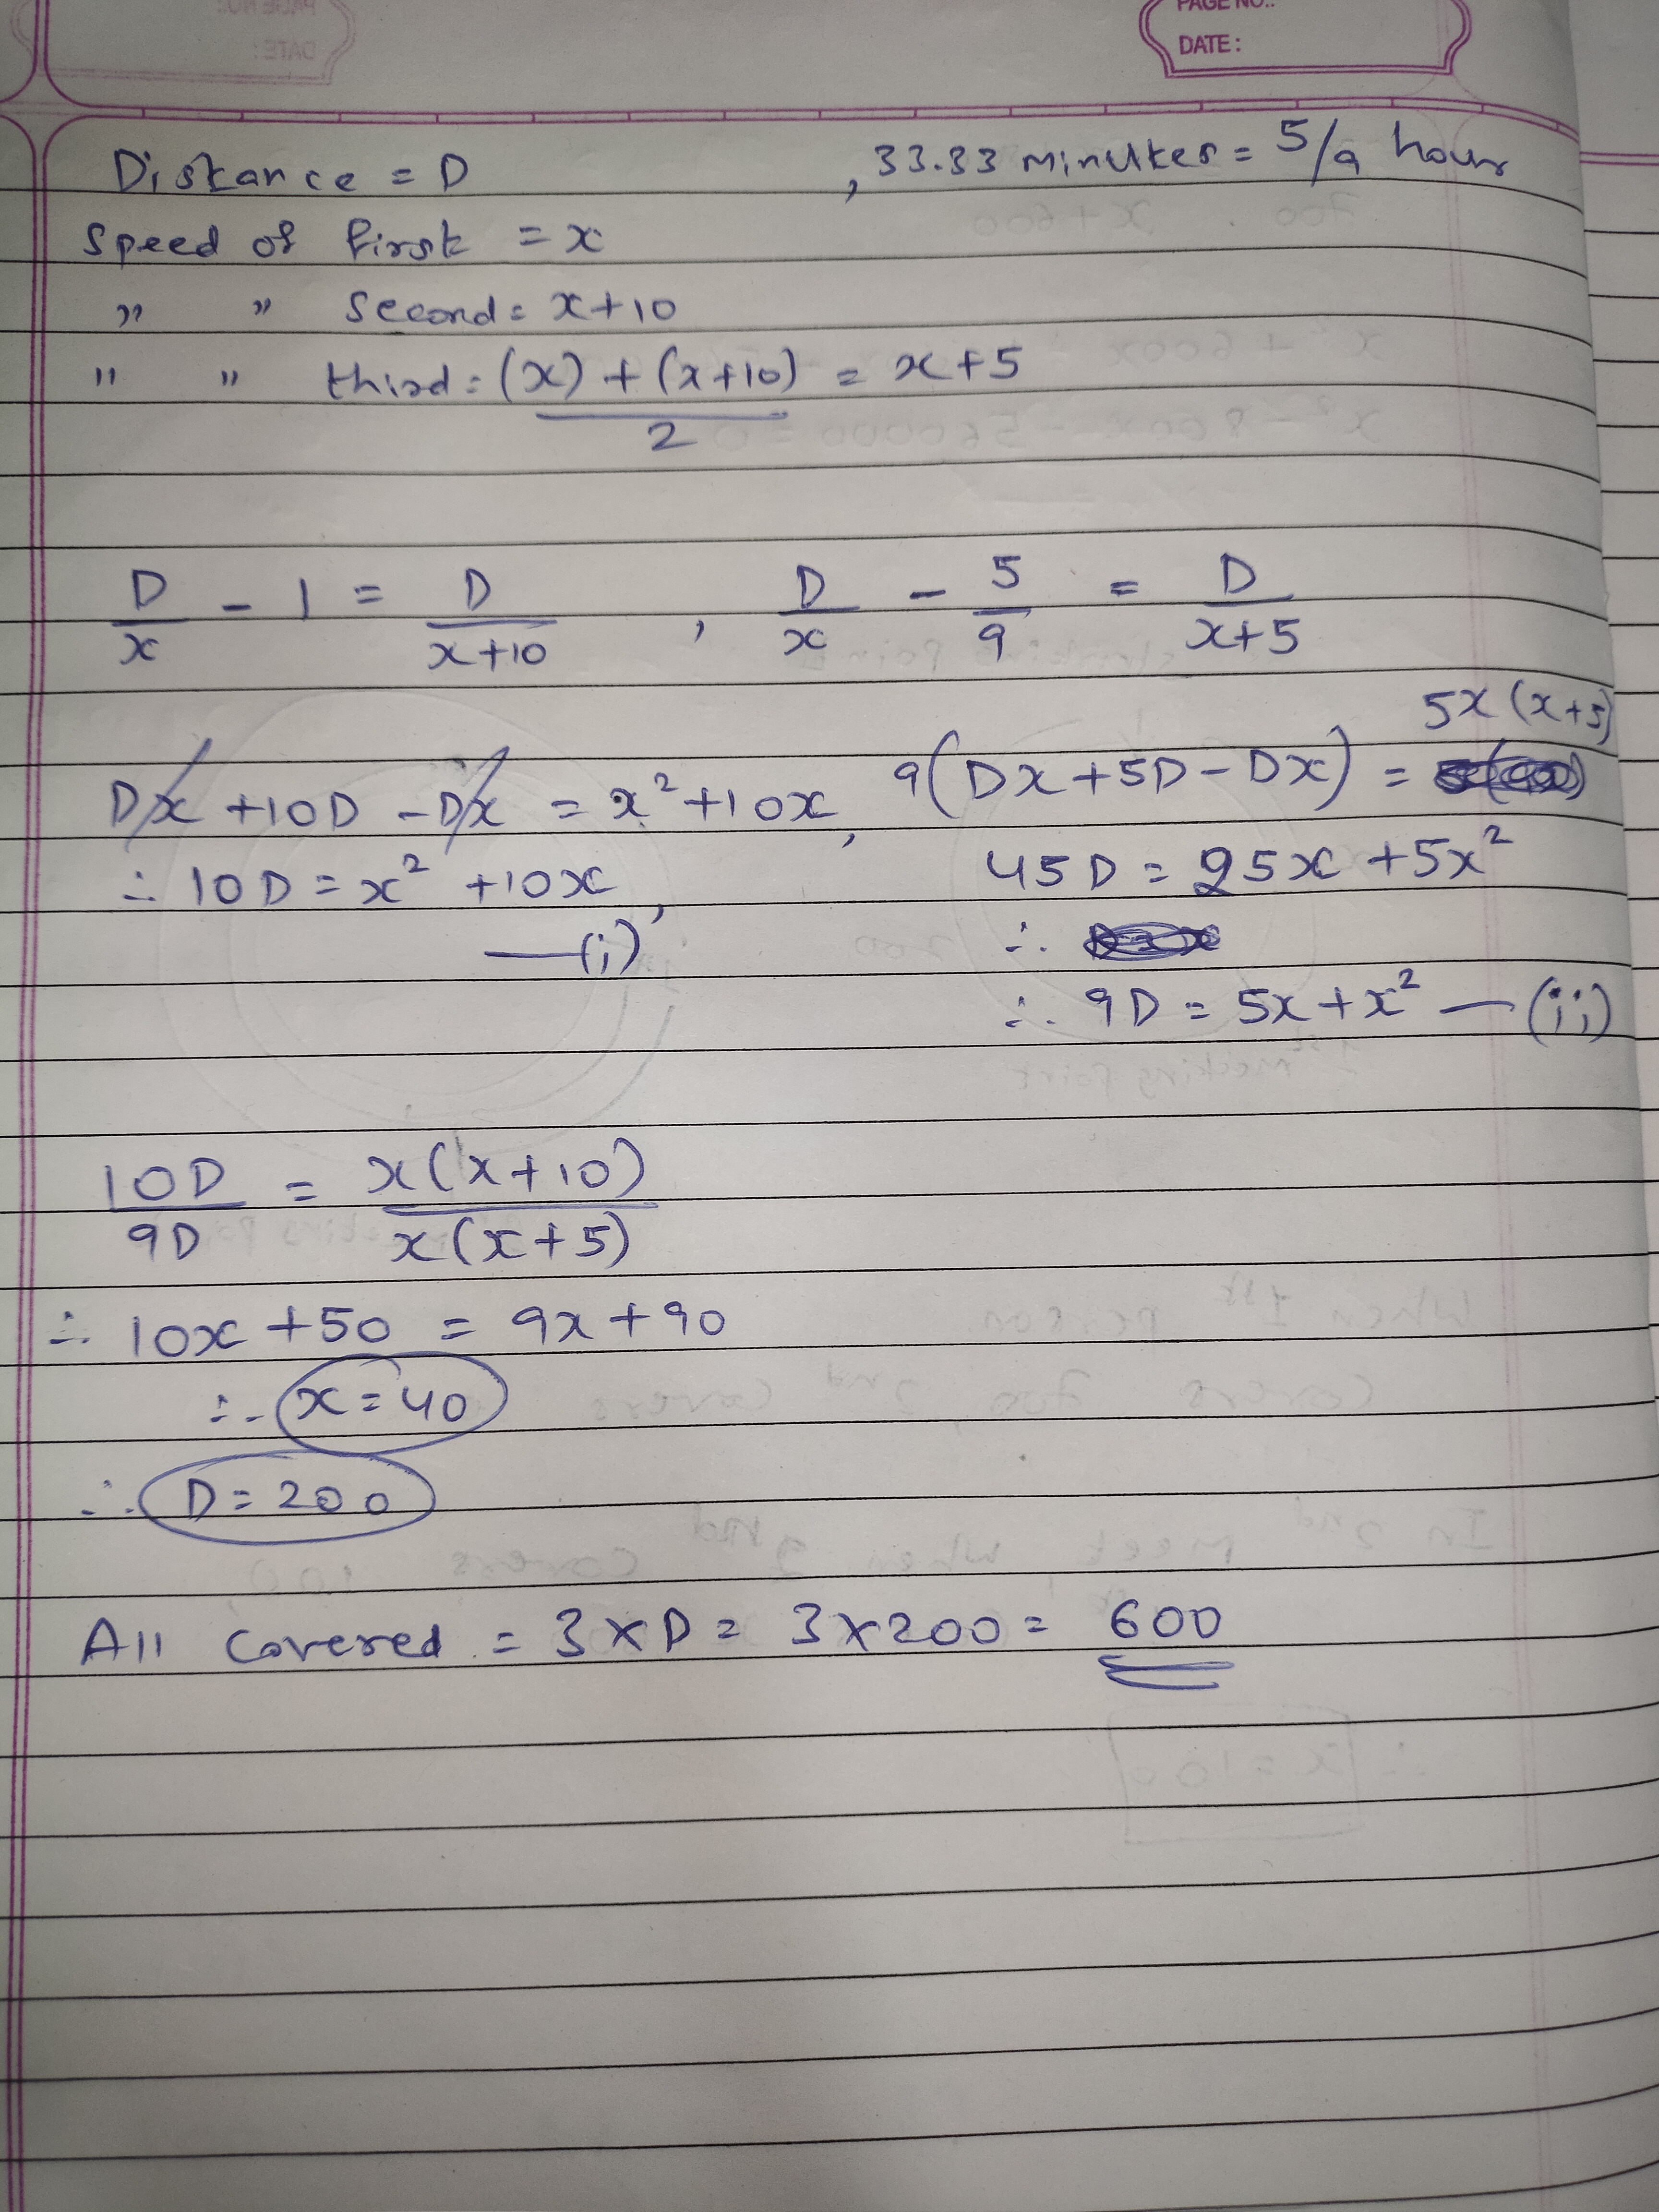 PAGE NO.:
DATE:
Distance = D , 33.33 minutes = 5/9 hour
Speed of first = x
" " second = x+10
" " third = (x) + (x+10) / 2 = x+5
D/x - 1 = D/(x+10) , D/x - 5/9 = D/(x+5)
Dx + 10D - Dx = x² + 10x, 9(Dx + 5D - Dx) = 5x(x+5)
∴ 10D = x² + 10x, 45D = 25x + 5x²
—(i)
∴ 9D = 5x + x² —(ii)
10D/9D = x(x+10)/x(x+5)
∴ 10x + 50 = 9x + 90
∴ x = 40
∴ D = 200
All covered = 3×D = 3×200 = 600